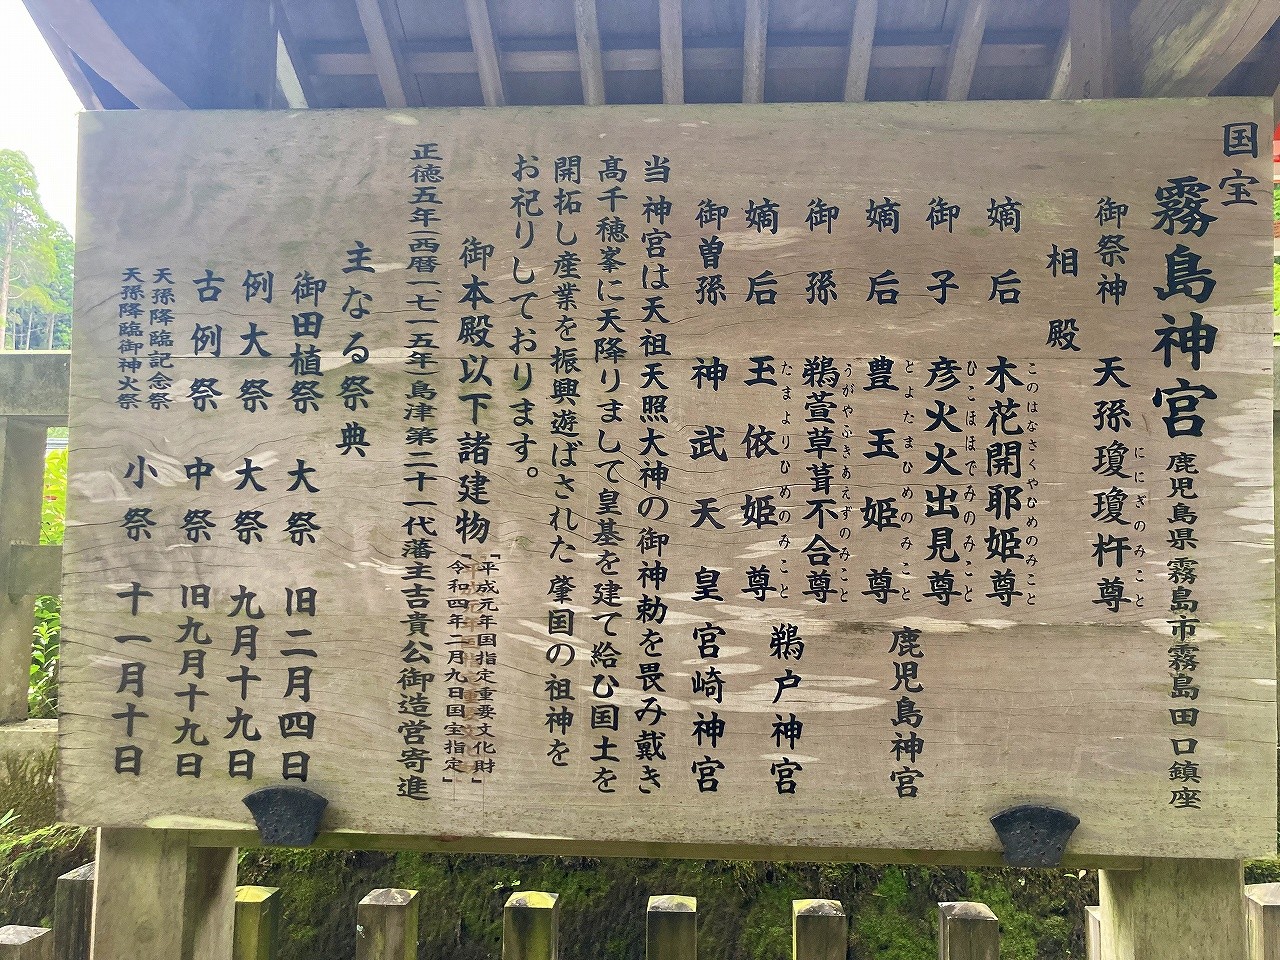 国宝
霧島神宮 鹿児島県霧島市霧島田口鎮座
御祭神 天孫瓊瓊杵尊
ににぎのみこと
相殿
嫡后 木花開耶姫尊
このはなさくやひめのみこと
御子 彦火火出見尊
ひこほほでみのみこと
鹿児島神宮
嫡后 豊玉姫尊
とよたまひめのみこと
御孫 鵜萱草葺不合尊
うがやふきあえずのみこと
鵜戸神宮
嫡后 玉依姫尊
たまよりひめのみこと
御曽孫 神武天皇 宮崎神宮
当神宮は天祖天照大神の御神勅を畏み戴き
高千穂峯に天降りまして皇基を建て給ひ国土を
開拓し産業を振興遊ばされた肇国の祖神を
お祀りしております。
御本殿以下諸建物
「平成元年国指定重要文化財」
「令和四年二月九日国宝指定」
正徳五年(西暦一七一五年)島津第二十一代藩主吉貴公御造営寄進
主なる祭典
御田植祭 大祭 旧二月四日
例大祭 大祭 九月十九日
古例祭 中祭 旧九月十九日
天孫降臨記念祭
天孫降臨御神火祭
小祭 十一月十日